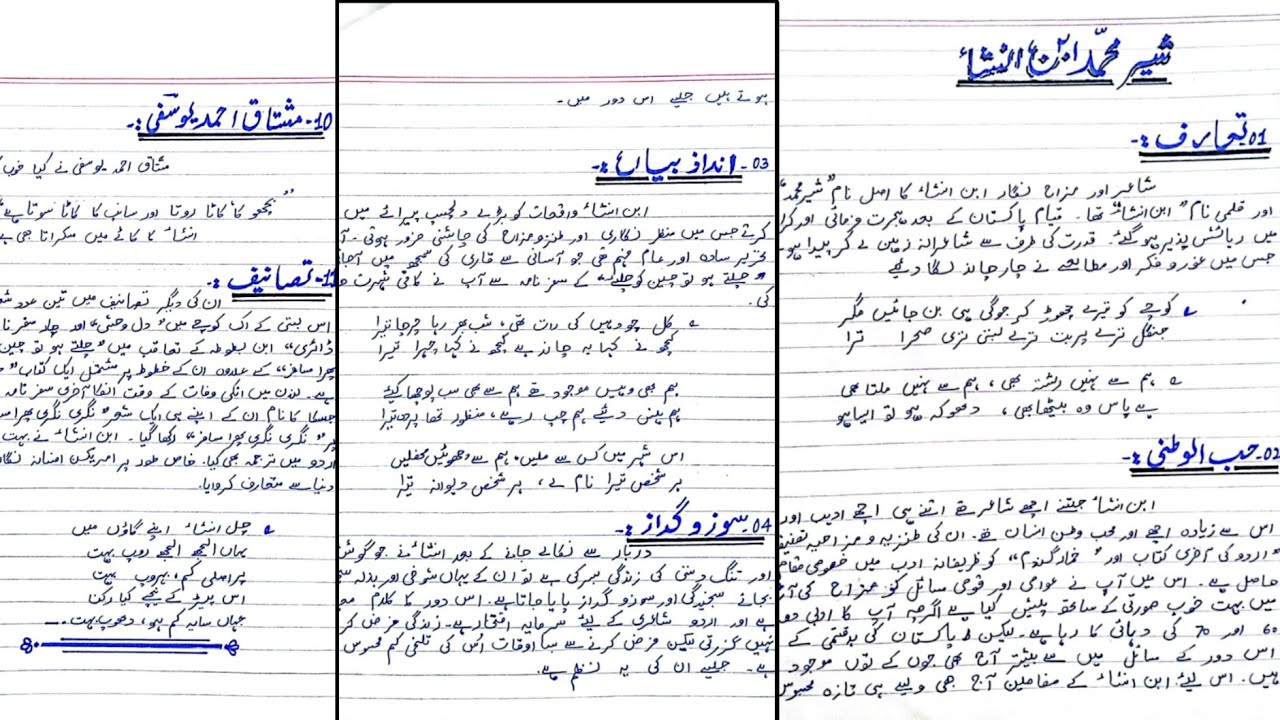 شیر محمّد ابن انشاء
01 تعارف :-
شاعر اور مزاح نگار ابن انشاء کا اصل نام "شیر محمد"
اور قلمی نام "ابن انشاء" تھا۔ قیام پاکستان کے بعد ہجرت فرمائی اور کرا
میں رہائش پذیر ہو گئے۔ قدرت کی طرف سے شاعرانہ زمین لے کر پیدا ہو
جس میں غور و فکر اور مطالعے نے چار چاند لگا دیئے
کوچے کو تیرے چھوڑ کر جوگی ہی بن جائیں مگر
جنگل ترے پربت ترے بستی تری صحرا ترا
ہم سے نہیں رشتہ بھی، ہم سے نہیں ملتا بھی
ہے پاس وہ بیٹھا بھی، دھوکہ ہو تو ایسا ہو
02- حب الوطنی :-
ابن انشاء جتنے اچھے شاعر تھے اتنے ہی اچھے ادیب اور
اس سے زیادہ اچھے اور محب وطن انسان تھے۔ ان کی طنزیہ و مزاحیہ تصنیف
"اردو کی آخری کتاب اور "خمار گندم" کو ظریفانہ ادب میں خصوصی مقام
حاصل ہے۔ اس میں آپ نے عوامی اور قومی مسائل کو مزاح کی آڑ
میں بہت خوب صورتی کے ساتھ پیش کیا ہے اگرچہ آپ کا ادبی دو
60 اور 70 کی دہائی کا رہا ہے۔ لیکن پاکستان کی بدقسمتی کے
اس دور کے مسائل میں سے بیشتر آج بھی جوں کے توں موجود
ہیں۔ اس لیئے ابن انشاء کے مضامین آج بھی ویسے ہی تازہ محسوس
ہوتے ہیں جیسے اس دور میں۔
03- انداز بیاں :-
ابن انشاء واقعات کو بڑے دلچسپ پیرائے میں
کرتے جس میں منظر نگاری اور طنز و مزاح کی چاشنی ضرور ہوتی۔ آ
تحریر سادہ اور عام فہم تھی جو آسانی سے قاری کی سمجھ میں آجا
"چلتے ہو تو چین کو چلئے" کے سفر نامہ سے آپ نے کافی شہرت
کی۔
کل چودہیں کی رات تھی، شب بھر رہا چرچا تیرا
کچھ نے کہا یہ چاند ہے کچھ نے کہا چہرا تیرا
ہم بھی وہیں موجود تھے ہم سے بھی سب پوچھا کیئے
ہم ہنس دیئے ہم چپ رہے، منظور تھا پردہ تیرا
اس شہر میں کس سے ملیں، ہم سے چھوٹیں محفلیں
ہر شخص تیرا نام لے، ہر شخص دیوانہ تیرا
04 سوز و گداز :-
دربار سے نکالے جانے کے بعد انشاء نے جو گوش
اور تنگ دستی کی زندگی بسر کی ہے تو ان کے یہاں شوخی اور بذلہ
بجائے سنجیدگی اور سوز و گداز پایا جاتا ہے۔ اس دور کا کلام
ہے اور اردو شاعری کے لیئے سرمایہ افتخار ہے۔ زندگی فرض کر
نہیں گزرتی لیکن فرض کرنے سے بسا اوقات اُس کی تلخی کم محسوس
ہے۔ جیسے ان کی یہ نظم ہے۔
10- مشتاق احمد یوسفی :-
مشتاق احمد یوسفی نے کیا خوب
"بچھو کا کاٹا روتا اور سانپ کا کاٹا سوتا ہے
انشاء کا کاٹے میں مسکراتا بھی ہے
11- تصانیف :-
ان کی دیگر تصانیف میں تین عدد
اس بستی کے اک کوچے میں" دل وحشی" اور چار سفر نا
ڈائری" ابن بطوطہ کے تعاقب میں" چلتے ہو تو چین
پھرا مسافر" کے علاوہ ان کے خطوط پر مشتمل ایک کتاب"
ہے۔ لندن میں انکی وفات کے وقت انکا آخری سفر نامہ
جسکا کا نام ان کے اپنے ہی ایک شعر" نگری نگری پھرا
پر" نگری نگری پھرا مسافر" رکھا گیا۔ ابن انشاء نے بہت
اردو میں ترجمہ بھی کیا۔ خاص طور پر امریکن افسانہ نگار
دنیا سے متعارف کروایا۔
چل انشاء اپنے گاؤں میں
یہاں الجھے الجھے روپ بہت
پر اصلی کم، بہروپ بہت
اس پیڑ کے نیچے کیا رکن
جہاں سایہ کم ہو، دھوپ بہت۔